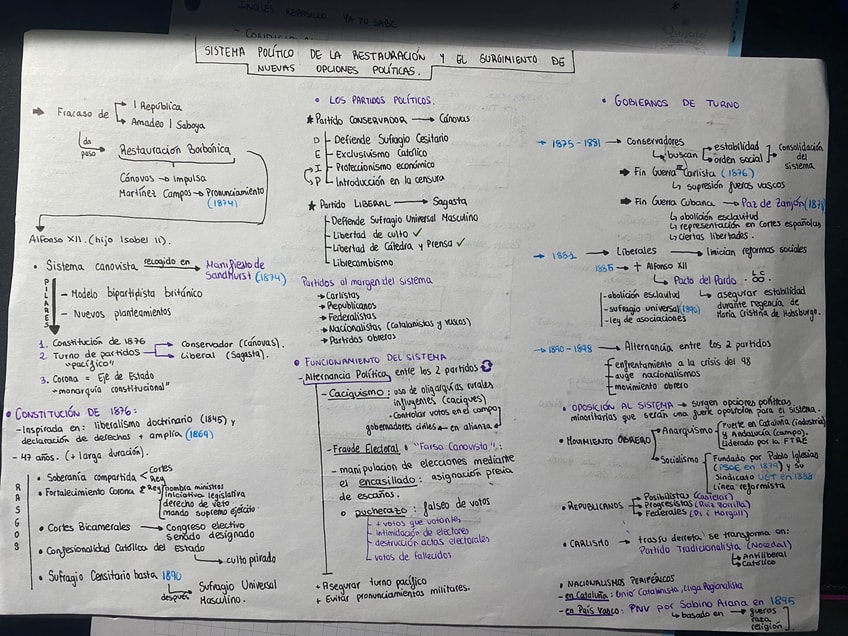 INGLÉS REPASILLO YA TU SABE
SISTEMA POLÍTICO DE LA RESTAURACIÓN Y EL SURGIMIENTO DE
NUEVAS OPCIONES POLÍTICAS.
→ Fracaso de → I República
→ Amadeo I Saboya
da paso
Restauración Borbónica
Cánovas → Impulsa
Martínez Campos → Pronunciamiento
(1874)
Alfonso XII. (hijo Isabel II).
• Sistema canovista recogido en → Manifiesto de
Sandhurst (1874)
PILARES
- Modelo bipartidista británico
- Nuevos planteamientos
1. Constitución de 1876
2. Turno de partidos → Conservador (Cánovas).
"pacífico" → Liberal (Sagasta).
3. Corona = Eje de Estado
"monarquía constitucional"
• CONSTITUCIÓN DE 1876:
- Inspirada en: liberalismo doctrinario (1845) y
declaración de derechos + amplía (1869)
- 47 años. (+ larga duración).
RASGOS
• Soberanía compartida < Cortes
Rey
• Fortalecimiento Corona → Rey nombra ministros
iniciativa legislativa
derecho de veto
mando supremo ejército
• Cortes Bicamerales → Congreso electivo
senado designado
• Confesionalidad Católica del Estado
↳ culto privado
• Sufragio Censitario hasta 1890
después → Sufragio Universal
Masculino.
• LOS PARTIDOS POLÍTICOS.
* Partido CONSERVADOR → Cánovas
D - Defiende Sufragio Cesitario
E - Exclusivismo Católico
I - Proteccionismo económico
P - Introducción en la censura
* Partido LIBERAL → Sagasta
- Defiende Sufragio Universal Masculino
- Libertad de culto ✓
- Libertad de Cátedra y Prensa ✓
- Librecambismo
Partidos al margen del sistema
→ Carlistas
→ Republicanos
→ Federalistas
→ Nacionalistas (catalanistas y vascos)
→ Partidos obreros
• FUNCIONAMIENTO DEL SISTEMA
- Alternancia Política, entre los 2 partidos
- Caciquismo: uso de oligarquías rurales
influyentes (caciques)
· Controlar votos en el campo
gobernadores civiles ← en alianza
- Fraude Electoral: "Farsa Canovista":
- manipulacion de elecciones mediante
el encasillado: asignación previa
de escaños.
o pucherazo: falseo de votos
+ votos que votantes
- intimidación de electores
- destrucción actas electorales
- votos de fallecidos
+ Asegurar turno pacífico
+ Evitar pronunciamientos militares.
• GOBIERNOS DE TURNO
→ 1875-1881 → Conservadores
↳ buscan → estabilidad
→ orden social → consolidación
del
sistema
→ Fin Guerra III Carlista (1876)
↳ supresión fueros vascos
→ Fin Guerra Cubana → Paz de Zanjón (1878)
↳ abolición esclavitud
↳ representación en Cortes españolas
↳ ciertas libertades.
→ 1881 → Liberales → Inician reformas sociales
1885 → + Alfonso XII
↳ Pacto del Pardo
L C
- abolición esclavitud
- sufragio universal (1890)
- ley de asociaciones
↳ asegurar estabilidad
durante regencia de
María Cristina de Habsburgo.
→ 1890-1898 → Alternancia entre los 2 partidos
- enfrentamiento a la crisis del 98
- auge nacionalismos
- movimiento obrero
• OPOSICIÓN AL SISTEMA → surgen opciones políticas
minoritarias que serán una fuerte oposición para el sistema.
• MOVIMIENTO OBRERO → Anarquismo
Fuerte en Cataluña (industria)
y Andalucía (campo).
Liderado por la FTRE
→ Socialismo
Fundado por Pablo Iglesias
(PSOE en 1879) y su
Sindicato UGT en 1888
Línea reformista
• REPUBLICANOS → Posibilistas (Castelar)
→ Progresistas (Ruiz Zorrilla)
→ Federales (Pi i Margall)
• CARLISMO → tras su derrota se transforma en:
Partido Tradicionalista (Nocedal)
↳ Antiliberal
Católico
• NACIONALISMOS PERIFÉRICOS
- en Cataluña: Unió Catalanista, Lliga Regionalista
- en País Vasco: PNV por Sabino Arana en 1895
↳ basado en → fueros
raza
religión